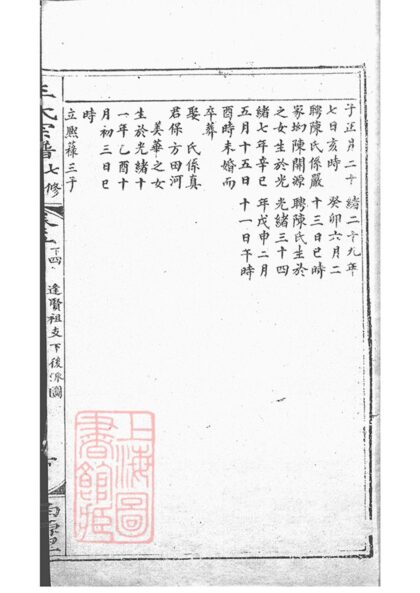 子正月二十
七日亥時
聘陳氏係嚴
家坳陳開源
之女生於光
緒七年辛巳
五月十五日
酉時未婚而
卒葬
娶 氏係真
君保方田河
姜華之女
生於光緒十
一年乙酉十
月初三日巳
時
立熙葆三子
緒二十九年
癸卯六月二
十三日巳時
聘陳氏生於
光緒三十四
年戊申二月
十一日午時
王氏宗譜 七修
逵賢祖支下後派圖
上海圖
書館藏